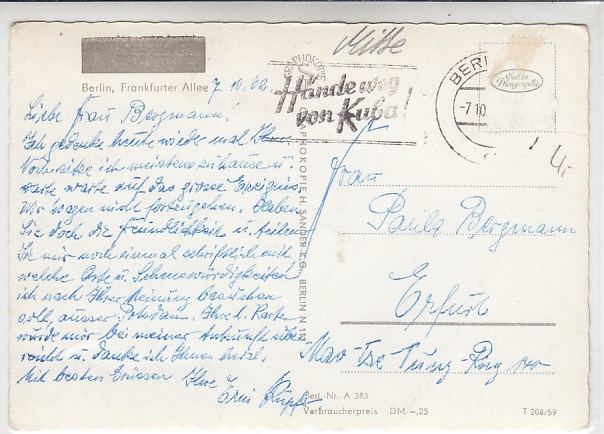 Mitte
Berlin, Frankfurter Allee
7.10.62
Hände weg
von Kuba!
BERL
-7.10
Echte Photographie
4,-
Liebe Frau Bergmann.
Ich gedenke heute wieder mal Ihrer.
sitze ich meistens zuhause u.
warte warte auf das grosse Ereignis
Wir wagen nicht fortzugehen. Haben
Sie doch die Freundlichkeit u. teilen
Sie mir noch einmal schriftlich mit
welche Orte u. Sehenswürdigkeiten
ich nach Ihrer Meinung besuchen
soll, ausser Potsdam. Ihre l. Karte
wurde mir bei meiner Ankunft übe
reicht u. danke ich Ihnen herzl.
Mit besten Grüssen Ihre
GRAPHOKOPIE H. SANDER K.G. BERLIN N 113
Frau
Paula Bergmann
Erfurt
Mao-Tse Tung-Ring
Best.-Nr. A 383
Verbraucherpreis DM -,25
T 208/59